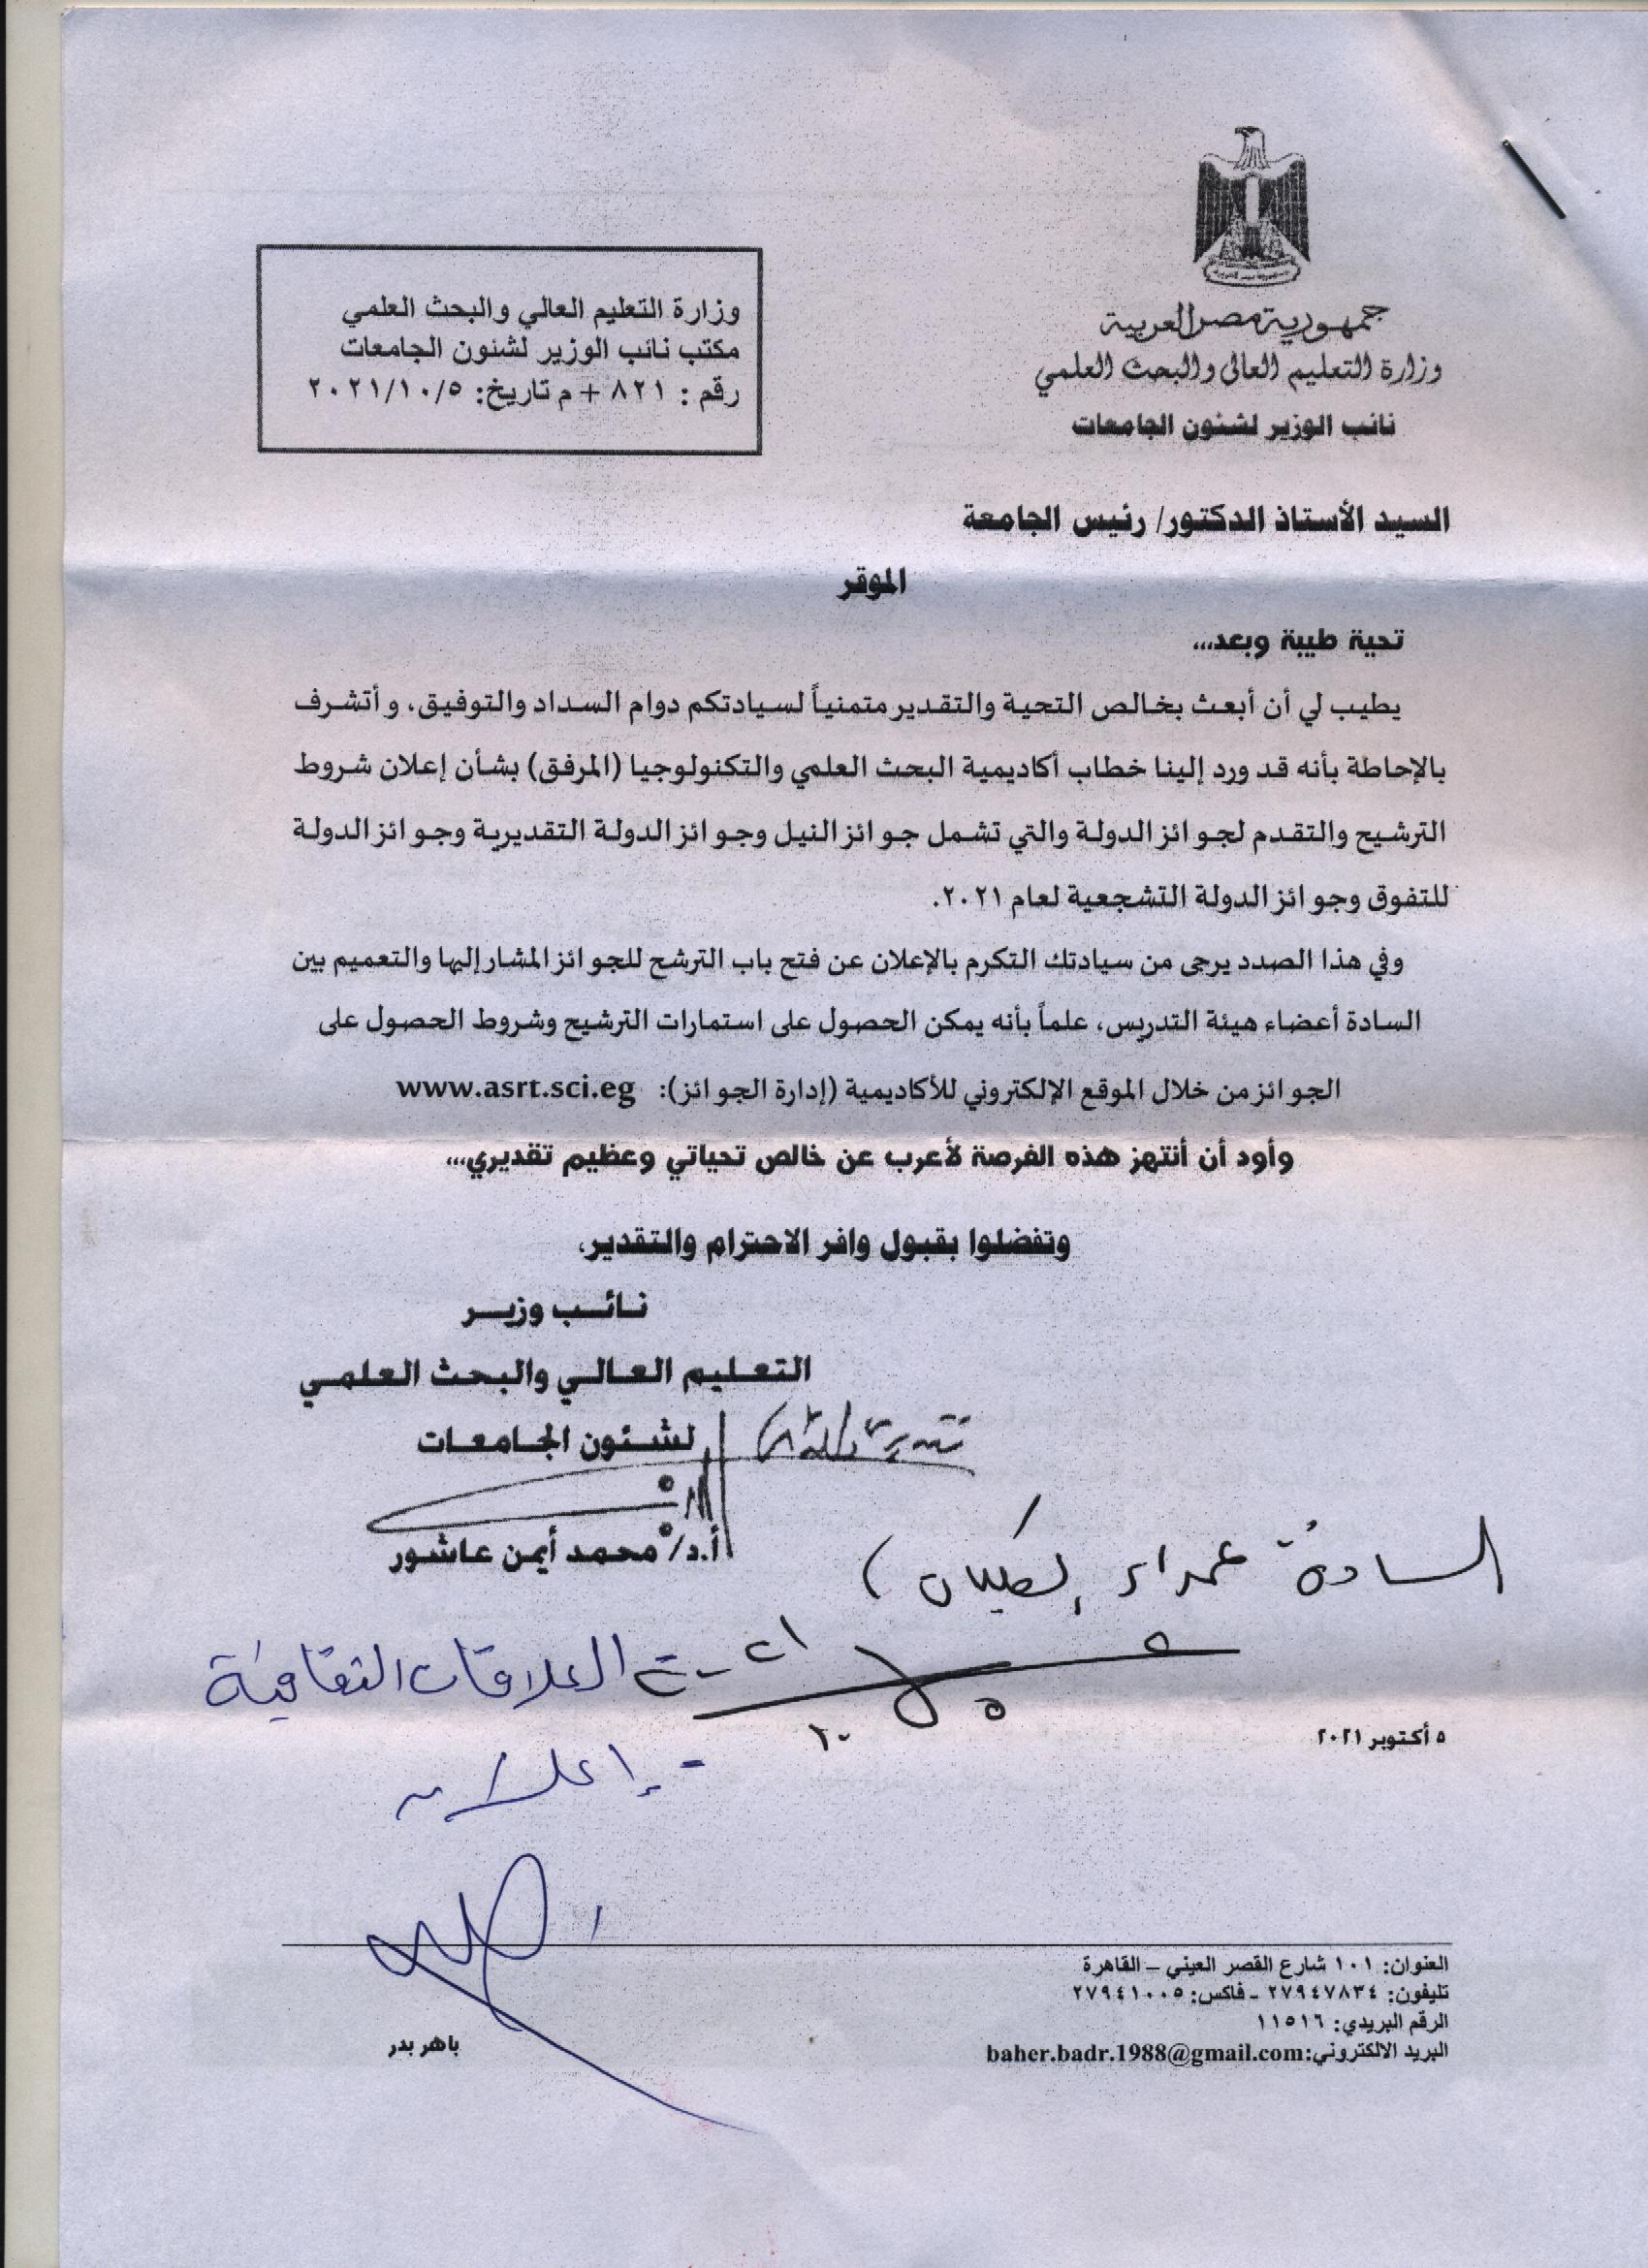 جمهورية مصر العربية
وزارة التعليم العالى والبحث العلمي
نائب الوزير لشئون الجامعات
وزارة التعليم العالي والبحث العلمي
مكتب نائب الوزير لشئون الجامعات
رقم : ٨٢١ + م تاريخ: ٢٠٢١/١٠/٥
السيد الأستاذ الدكتور/ رئيس الجامعة
الموقر
تحية طيبة وبعد...
يطيب لي أن أبعث بخالص التحية والتقدير متمنياً لسيادتكم دوام السداد والتوفيق، وأتشرف
بالإحاطة بأنه قد ورد إلينا خطاب أكاديمية البحث العلمي والتكنولوجيا (المرفق) بشأن إعلان شروط
الترشيح والتقدم لجوائز الدولة والتي تشمل جوائز النيل وجوائز الدولة التقديرية وجوائز الدولة
للتفوق وجوائز الدولة التشجعية لعام ٢٠٢١.
وفي هذا الصدد يرجى من سيادتك التكرم بالإعلان عن فتح باب الترشح للجوائز المشار إليها والتعميم بين
السادة أعضاء هيئة التدريس، علماً بأنه يمكن الحصول على استمارات الترشيح وشروط الحصول على
الجوائز من خلال الموقع الإلكتروني للأكاديمية (إدارة الجوائز): www.asrt.sci.eg
وأود أن أنتهز هذه الفرصة لأعرب عن خالص تحياتي وعظيم تقديري...
وتفضلوا بقبول وافر الاحترام والتقدير،
نائب وزير
التعليم العالي والبحث العلمي
لشئون الجامعات
أ.د/ محمد أيمن عاشور
السادة عمداء الكليات
العلاقات الثقافية
٥ أكتوبر ٢٠٢١
- إعلان
العنوان: ١٠١ شارع القصر العيني – القاهرة
تليفون: ٢٧٩٤٧٨٣٤ - فاكس: ٢٧٩٤١٠٠٥
الرقم البريدي: ١١٥١٦
البريد الالكتروني:baher.badr.1988@gmail.com
باهر بدر